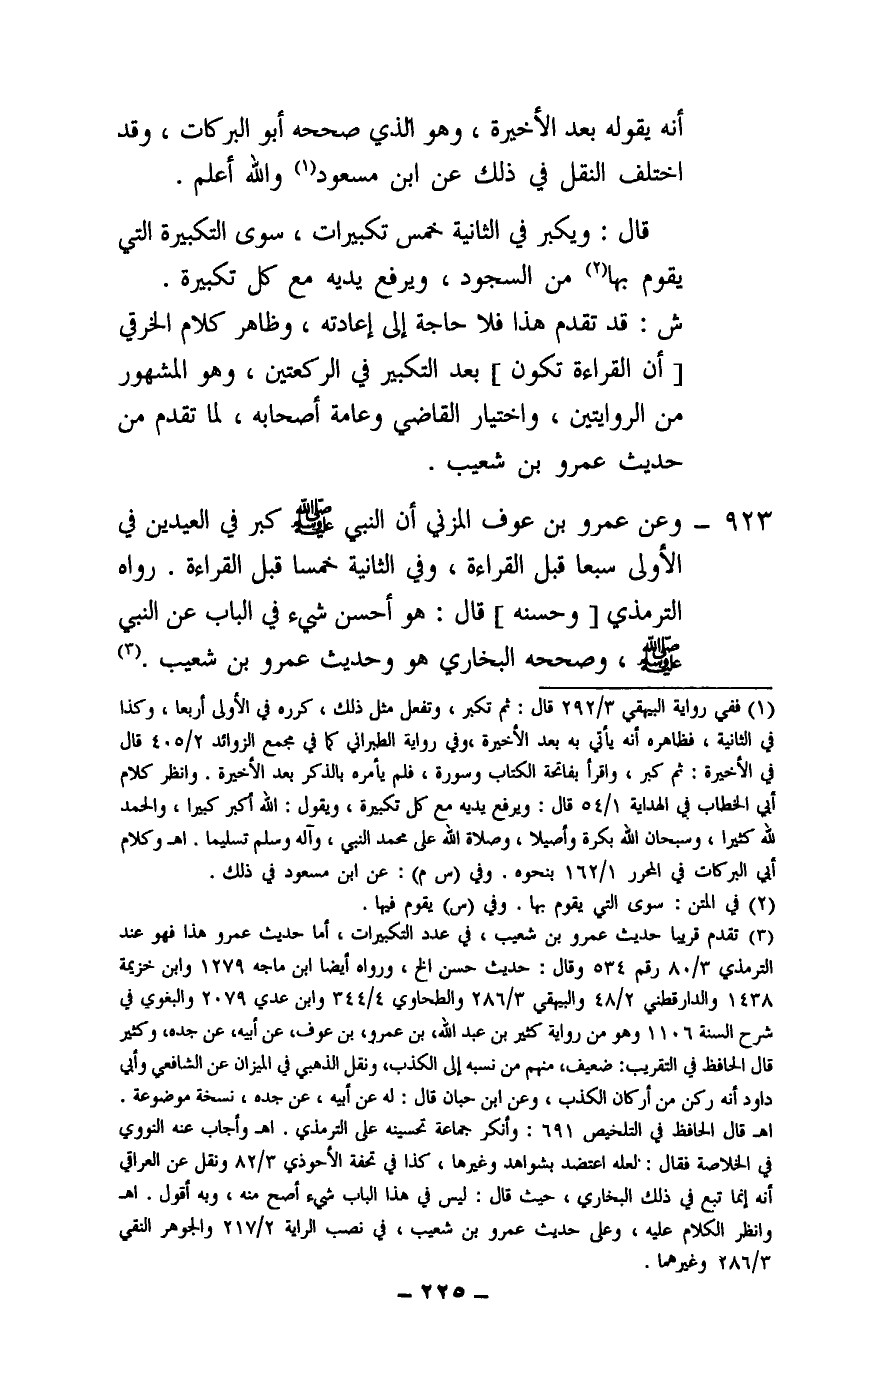 أنه يقوله بعد الأخيرة ، وهو الذي صححه أبو البركات ، وقد
اختلف النقل في ذلك عن ابن مسعود(١) والله أعلم .
قال : ويكبر في الثانية خمس تكبيرات ، سوى التكبيرة التي
يقوم بها(٢) من السجود ، ويرفع يديه مع كل تكبيرة .
ش : قد تقدم هذا فلا حاجة إلى إعادته ، وظاهر كلام الخرقي
[ أن القراءة تكون ] بعد التكبير في الركعتين ، وهو المشهور
من الروايتين ، واختيار القاضي وعامة أصحابه ، لما تقدم من
حديث عمرو بن شعيب .
٩٢٣ – وعن عمرو بن عوف المزني أن النبي ﷺ كبر في العيدين في
الأولى سبعا قبل القراءة ، وفي الثانية خمسا قبل القراءة . رواه
الترمذي [ وحسنه ] قال : هو أحسن شيء في الباب عن النبي
ﷺ ، وصححه البخاري هو وحديث عمرو بن شعيب .(٣)
(١) ففي رواية البيهقي ٢٩٢/٣ قال : ثم تكبر ، وتفعل مثل ذلك ، كرره في الأولى أربعا ، وكذا
في الثانية ، فظاهره أنه يأتي به بعد الأخيرة ،وفي رواية الطبراني كما في مجمع الزوائد ٤٠٥/٢ قال
في الأخيرة : ثم كبر ، واقرأ بفاتحة الكتاب وسورة ، فلم يأمره بالذكر بعد الأخيرة . وانظر كلام
أبي الخطاب في الهداية ٥٤/١ قال : ويرفع يديه مع كل تكبيرة ، ويقول : الله أكبر كبيرا ، والحمد
لله كثيرا ، وسبحان الله بكرة وأصيلا ، وصلاة الله على محمد النبي ، وآله وسلم تسليما . اهـ وكلام
أبي البركات في المحرر ١٦٢/١ بنحوه . وفي (س م) : عن ابن مسعود في ذلك .
(٢) في المتن : سوى التي يقوم بها . وفي (س) يقوم فيها .
(٣) تقدم قريبا حديث عمرو بن شعيب ، في عدد التكبيرات ، أما حديث عمرو هذا فهو عند
الترمذي ٨٠/٣ رقم ٥٣٤ وقال : حديث حسن الخ ، ورواه أيضا ابن ماجه ١٢٧٩ وابن خزيمة
١٤٣٨ والدارقطني ٤٨/٢ والبيهقي ٢٨٦/٣ والطحاوي ٣٤٤/٤ وابن عدي ٢٠٧٩ والبغوي في
شرح السنة ١١٠٦ وهو من رواية كثير بن عبد الله، بن عمرو، بن عوف، عن أبيه، عن جده، وكثير
قال الحافظ في التقريب: ضعيف، منهم من نسبه إلى الكذب، ونقل الذهبي في الميزان عن الشافعي وأبي
داود أنه ركن من أركان الكذب ، وعن ابن حبان قال : له عن أبيه ، عن جده ، نسخة موضوعة .
اهـ قال الحافظ في التلخيص ٦٩١ : وأنكر جماعة تحسينه على الترمذي . اهـ وأجاب عنه النووي
في الخلاصة فقال : لعله اعتضد بشواهد وغيرها ، كذا في تحفة الأحوذي ٨٢/٣ ونقل عن العراقي
أنه إنما تبع في ذلك البخاري ، حيث قال : ليس في هذا الباب شيء أصح منه ، وبه أقول . اهـ
وانظر الكلام عليه ، وعلى حديث عمرو بن شعيب ، في نصب الراية ٢١٧/٢ والجوهر النقي
٢٨٦/٣ وغيرهما .
– ٢٢٥ –